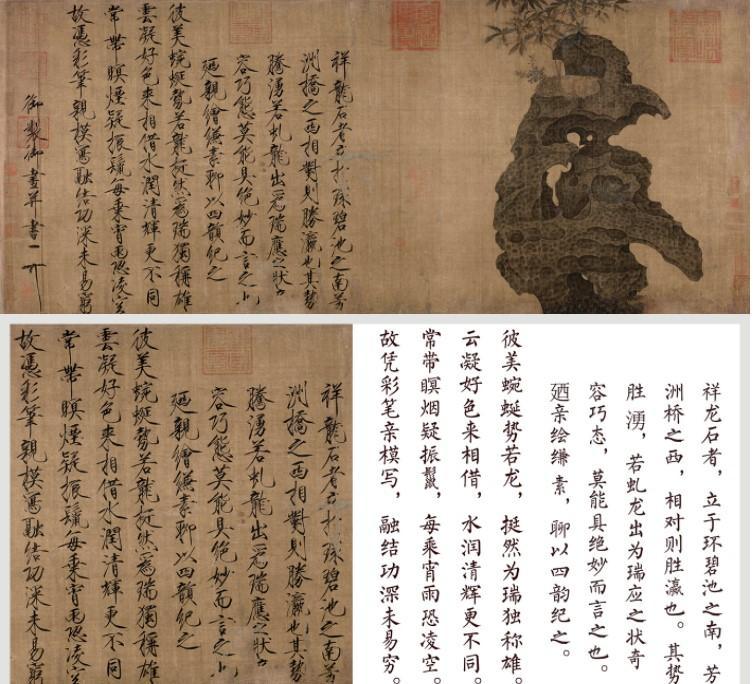 祥龍石者立於環碧池之南芳
洲橋之西相對則勝瀛也其勢
騰湧若虬龍出為瑞應之狀奇
容巧態莫能具絕妙而言之也
廼親繪縑素聊以四韻紀之
彼美蜿蜒勢若龍挺然為瑞獨稱雄
雲凝好色來相借水潤清輝更不同
常帶暝煙疑振鬣每乘宵雨恐凌空
故憑彩筆親模寫融結功深未易窮
御製御畫并書
祥龙石者，立于环碧池之南，芳
洲桥之西，相对则胜瀛也。其势
胜 湧，若虬龙出为瑞应之状奇
容巧态，莫能具绝妙而言之也。
廼亲绘缣 素，聊以四韵纪之。
彼美蜿蜒势若龙，挺然为瑞独称雄。
云凝好色来相借，水润清辉更不同。
常带暝烟疑振鬣，每乘宵雨恐凌空。
故凭彩笔亲模写，融结功深未易穷。
祥龍石者立於環碧池之南芳
洲橋之西相對則勝瀛也其勢
騰湧若虬龍出為瑞應之狀奇
容巧態莫能具絕妙而言之也
廼親繪縑素聊以四韻紀之
彼美蜿蜒勢若龍挺然為瑞獨稱雄
雲凝好色來相借水潤清輝更不同
常帶暝煙疑振鬣每乘宵雨恐凌空
故憑彩筆親模寫融結功深未易窮